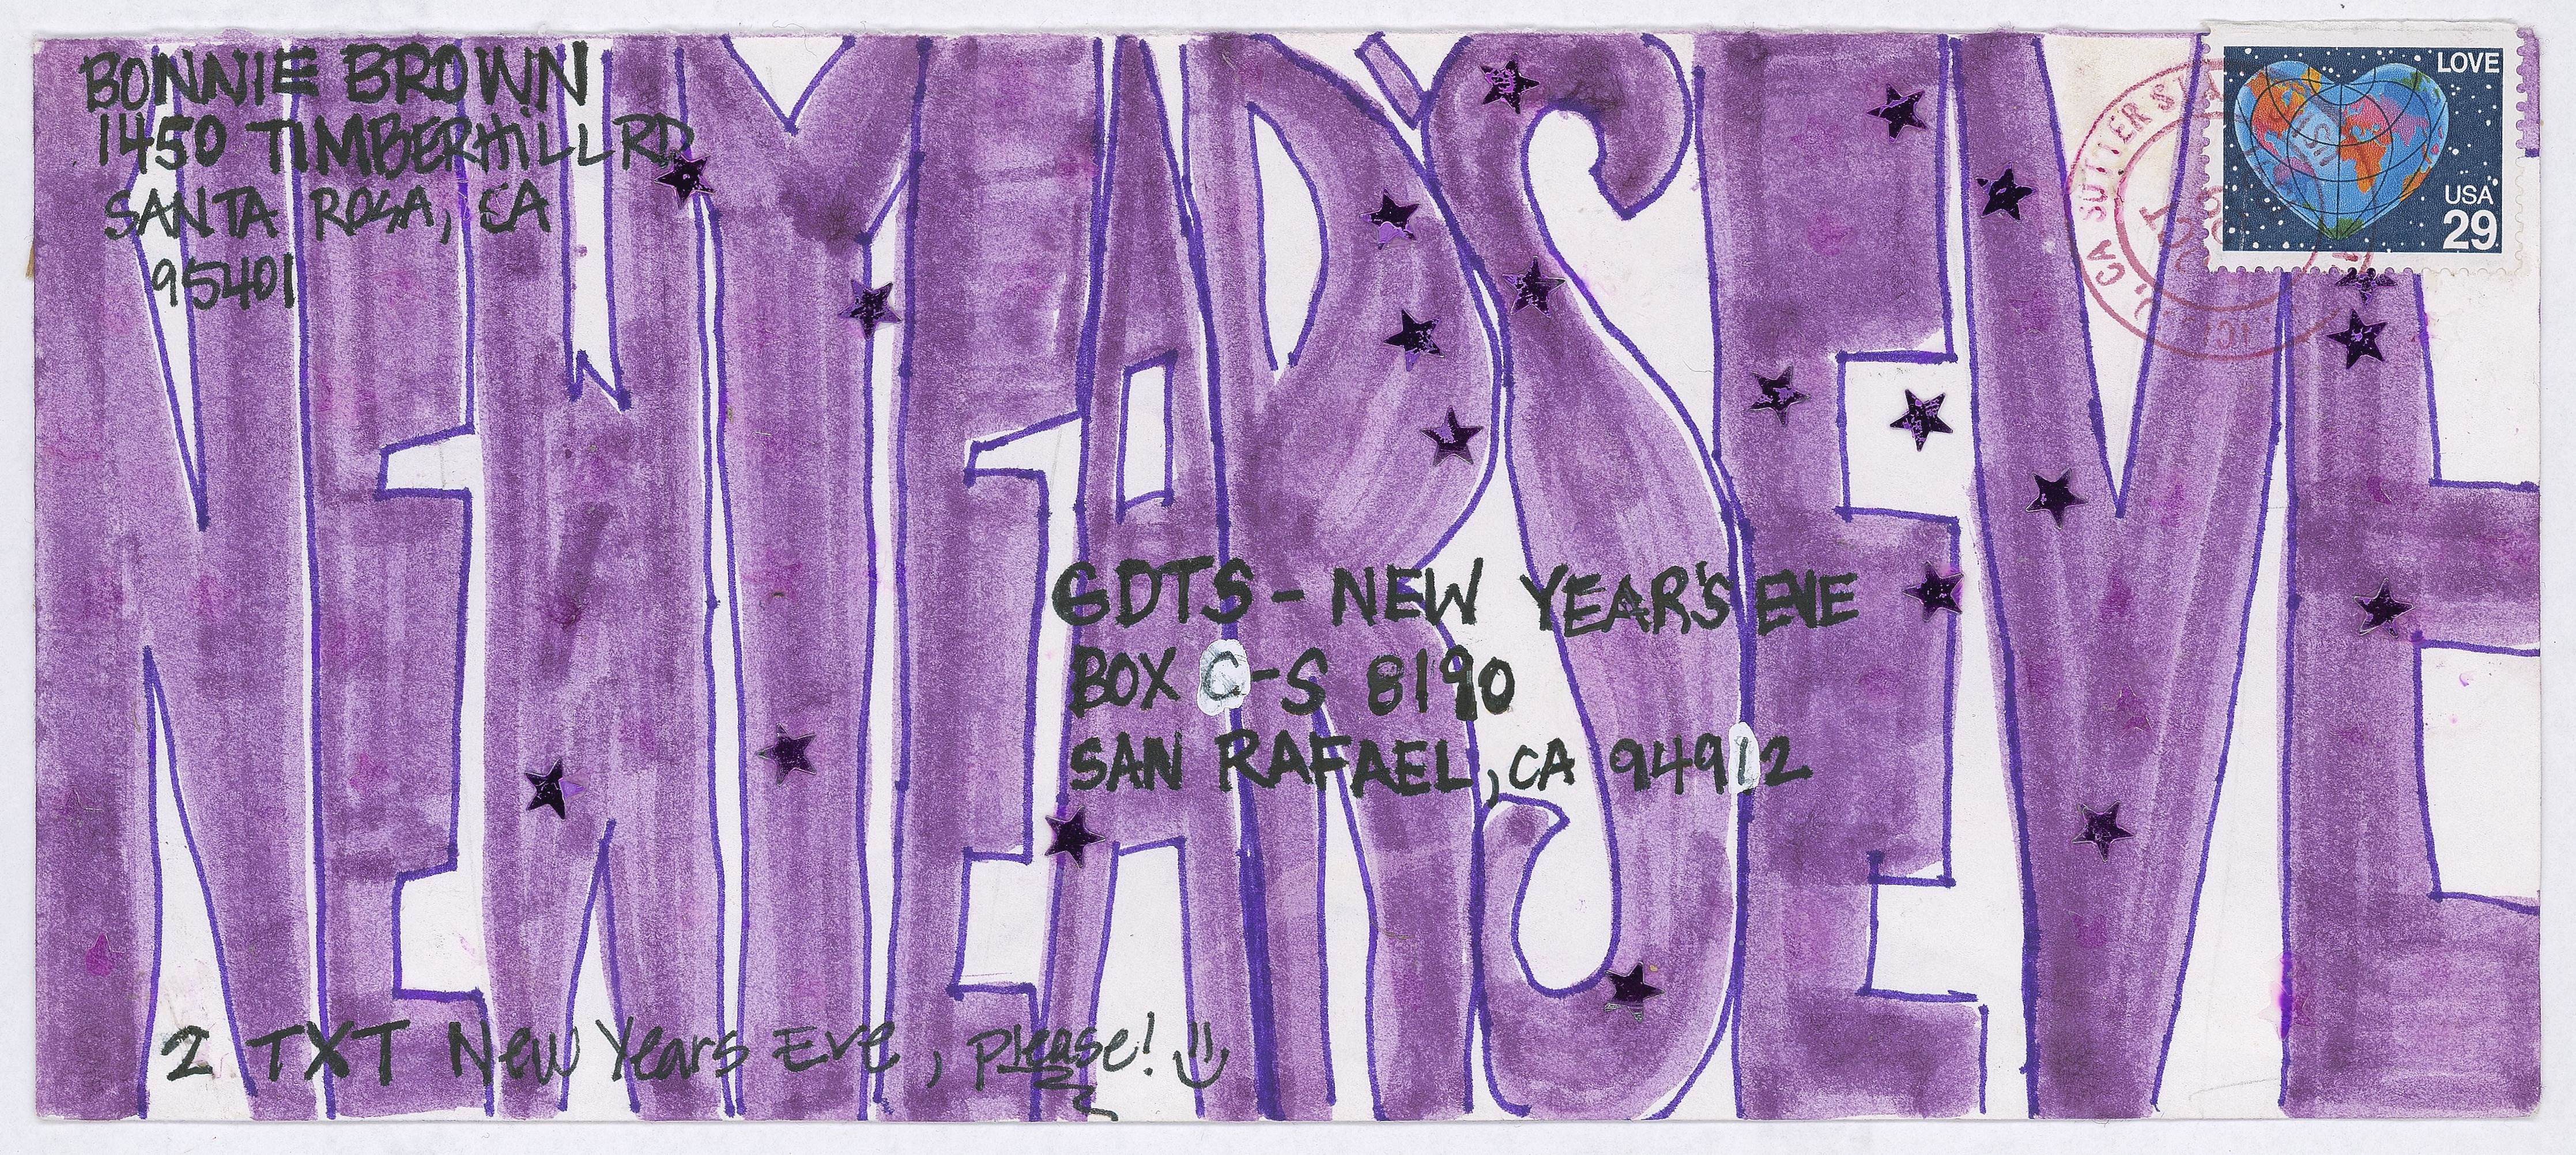 BONNIE BROWN
1450 TIMBERHILL RD
SANTA ROSA, CA
95401
LOVE
USA
29
CA SUTTER STA
NEW YEARS EVE
GDTS - NEW YEAR'S EVE
BOX C-S 8190
SAN RAFAEL, CA 94912
2 TXT New Years Eve, please!